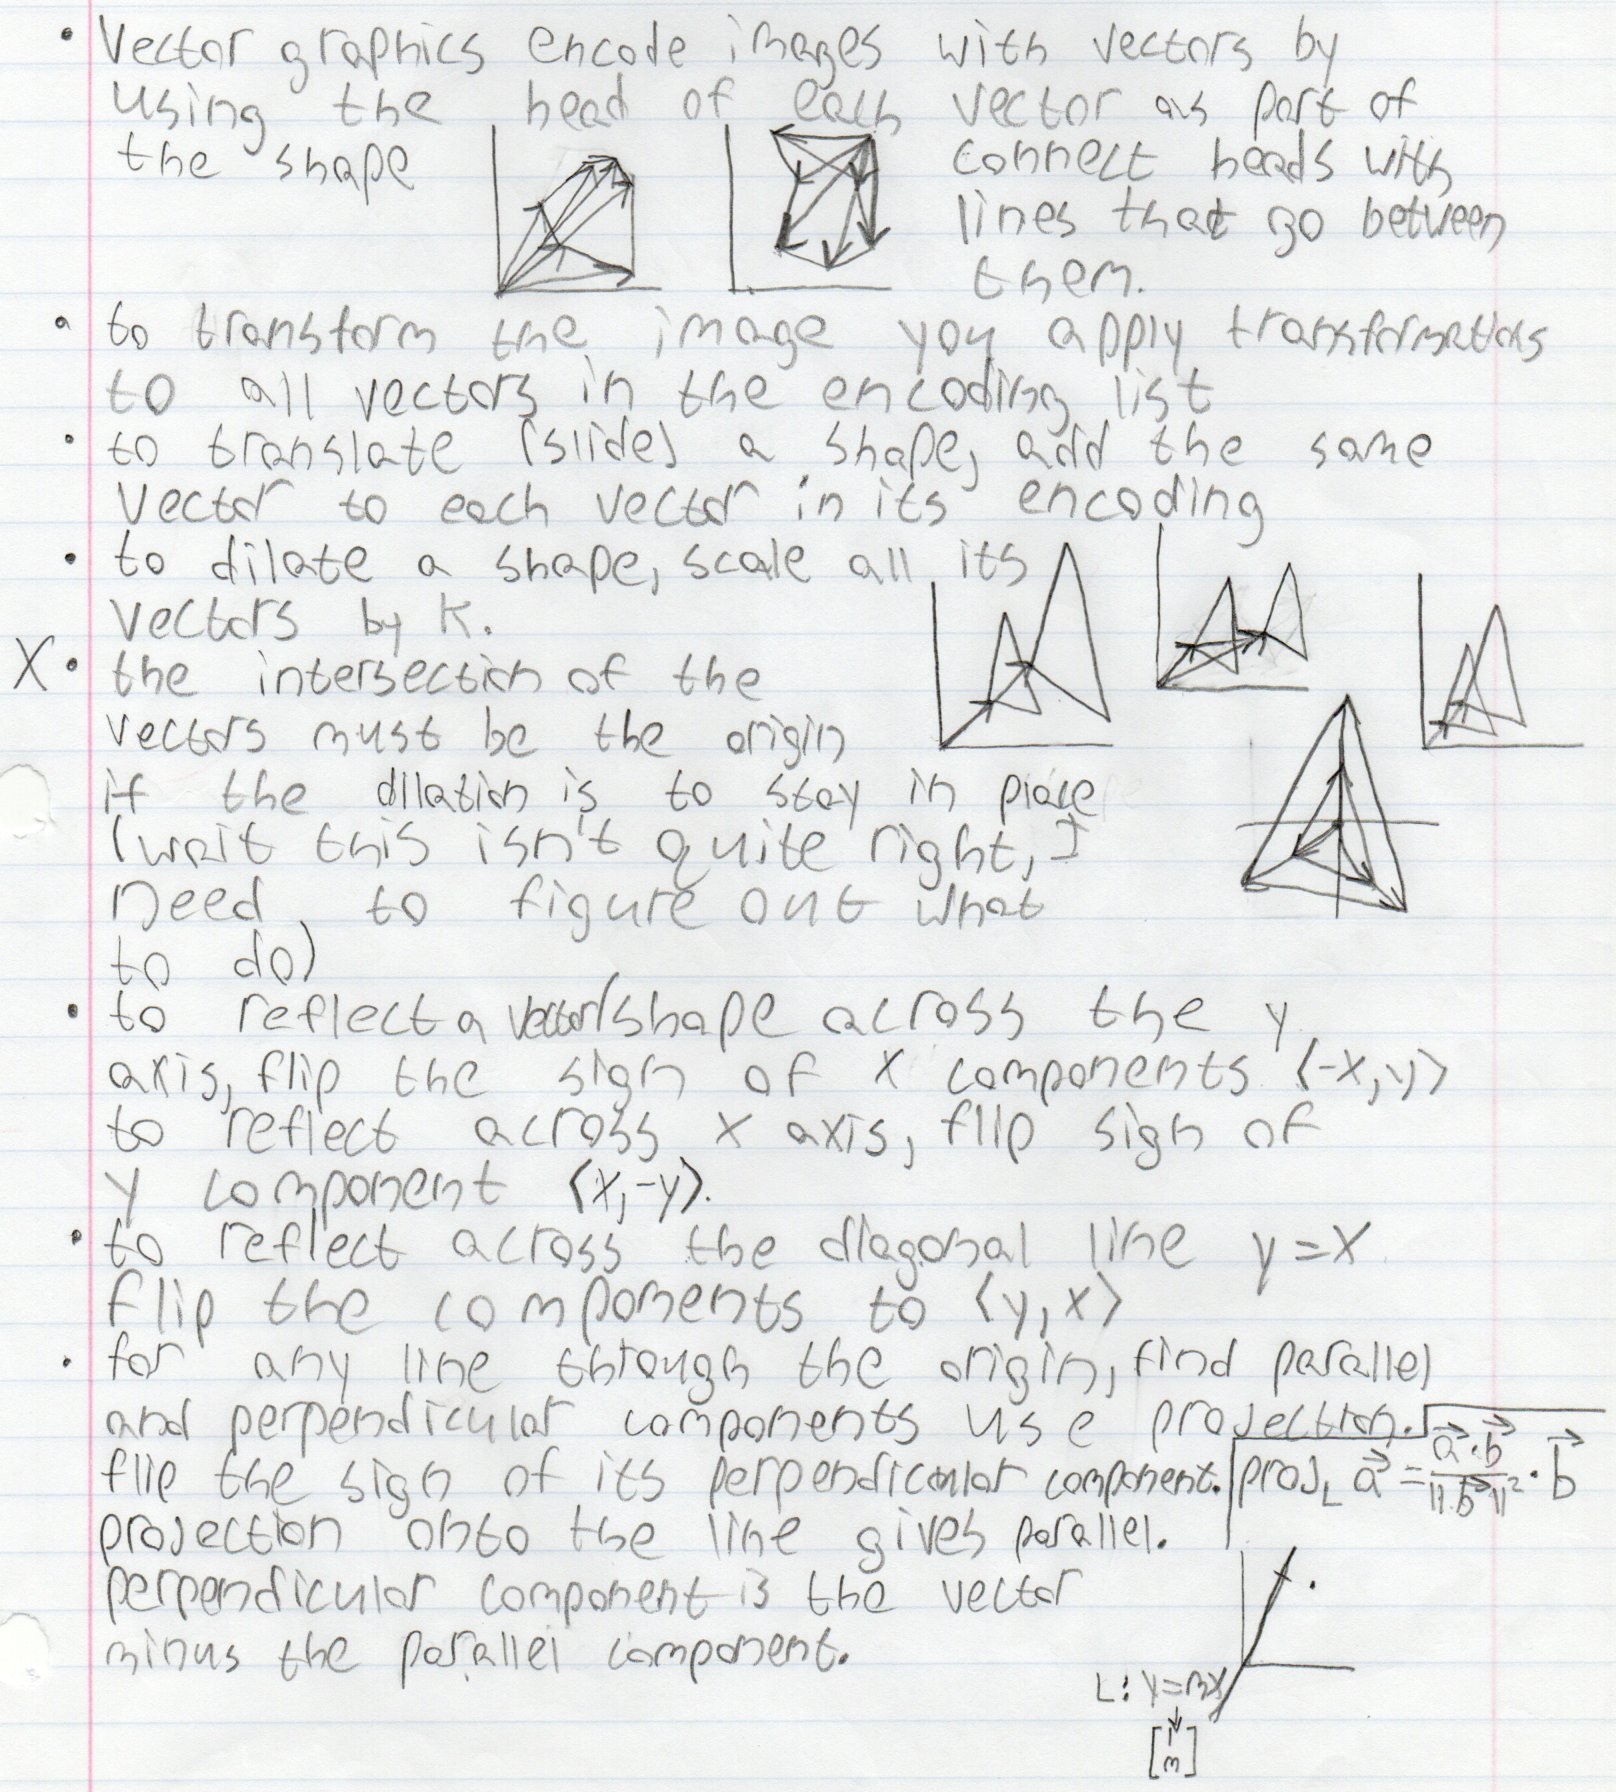 • Vector graphics encode images with vectors by
using the head of each vector as part of
the shape
connect heads with
lines that go between
them.
• to transform the image you apply transformations
to all vectors in the encoding list
• to translate (slide) a shape, add the same
vector to each vector in its encoding
• to dilate a shape, scale all its
vectors by K.
X • the intersection of the
vectors must be the origin
if the dilation is to stay in place
(wait this isn't quite right, I
need to figure out what
to do)
• to reflect a vector/shape across the y
axis, flip the sign of x components ⟨-x,y⟩
to reflect across x axis, flip sign of
y component ⟨x,-y⟩.
• to reflect across the diagonal line y=x
flip the components to ⟨y,x⟩
• for any line through the origin, find parallel
and perpendicular components use projection.
flip the sign of its perpendicular component.
proj_L a⃗ = (a⃗·b⃗)/‖b⃗‖² · b⃗
projection onto the line gives parallel.
perpendicular component is the vector
minus the parallel component.
L: y=mx
↓
[1
m]